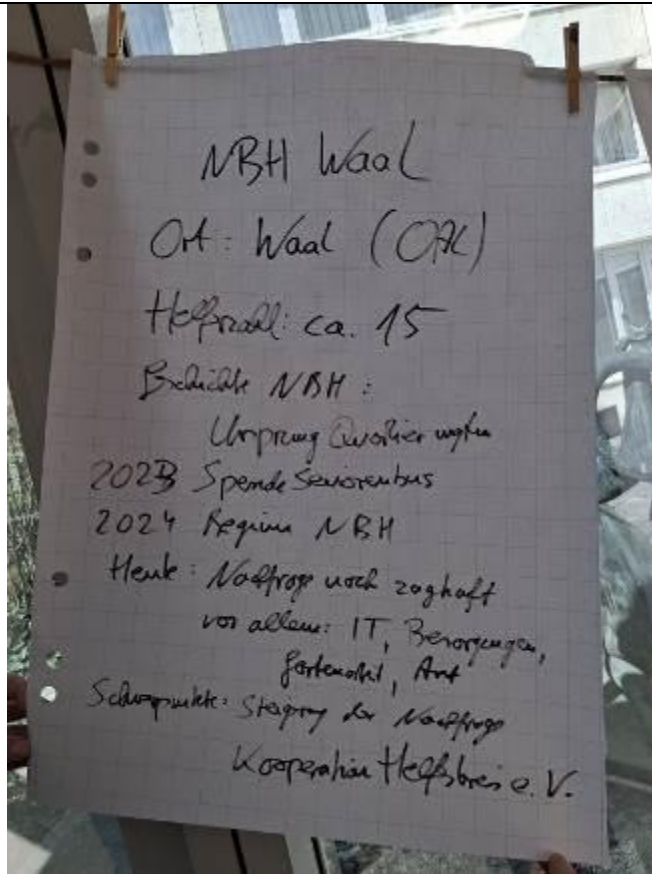 NBH Waal
Ort: Waal (OAL)
Helferzahl: ca. 15
NBH:
Ursprung Quartier
2023 Spende Seniorenbus
2024 Beginn NBH
Heute: Nachfrage noch zaghaft
vor allem: IT, Besorgungen,
Gartenarbeit, Arzt
Schwerpunkte: Steigerung der Nachfrage
Kooperation Helferkreis e.V.